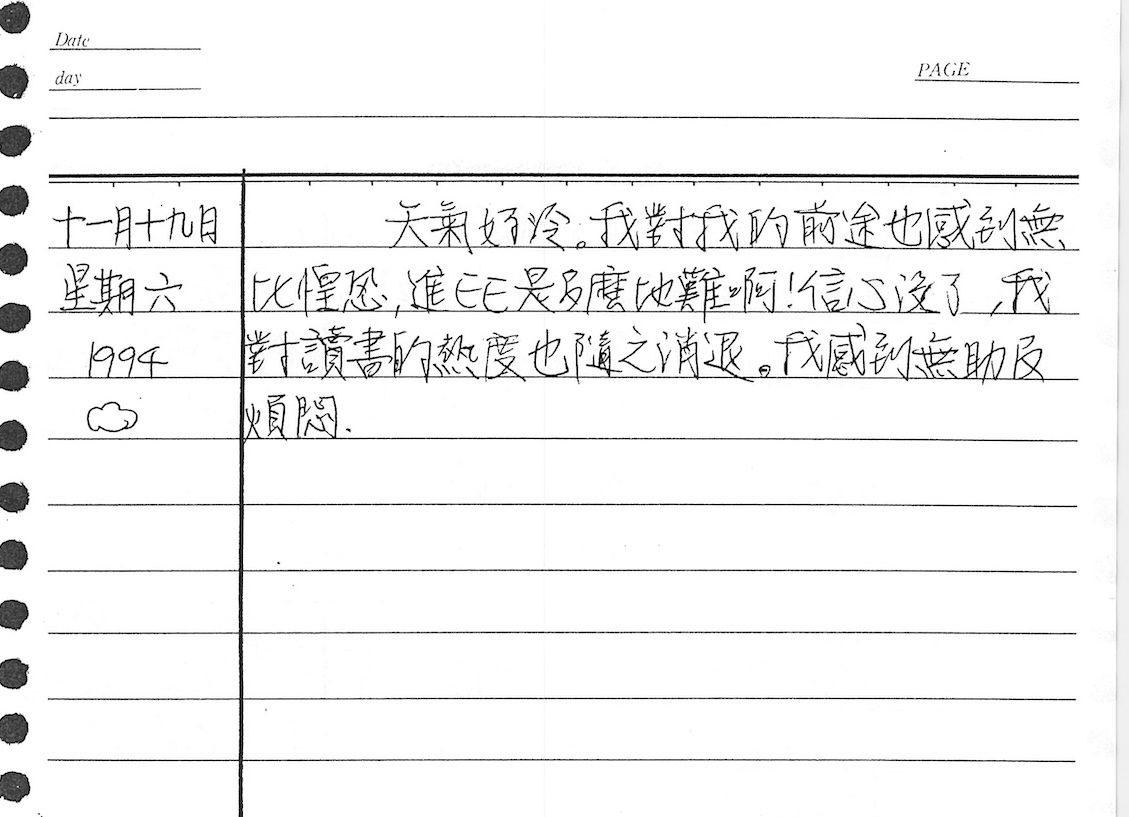 Date
day
PAGE
十一月十九日
星期六
1994
天氣好冷。我對我的前途也感到無
比惶恐,進EE是多麼地難啊!信心沒了,我
對讀書的熱度也隨之消退。我感到無助及
煩悶.